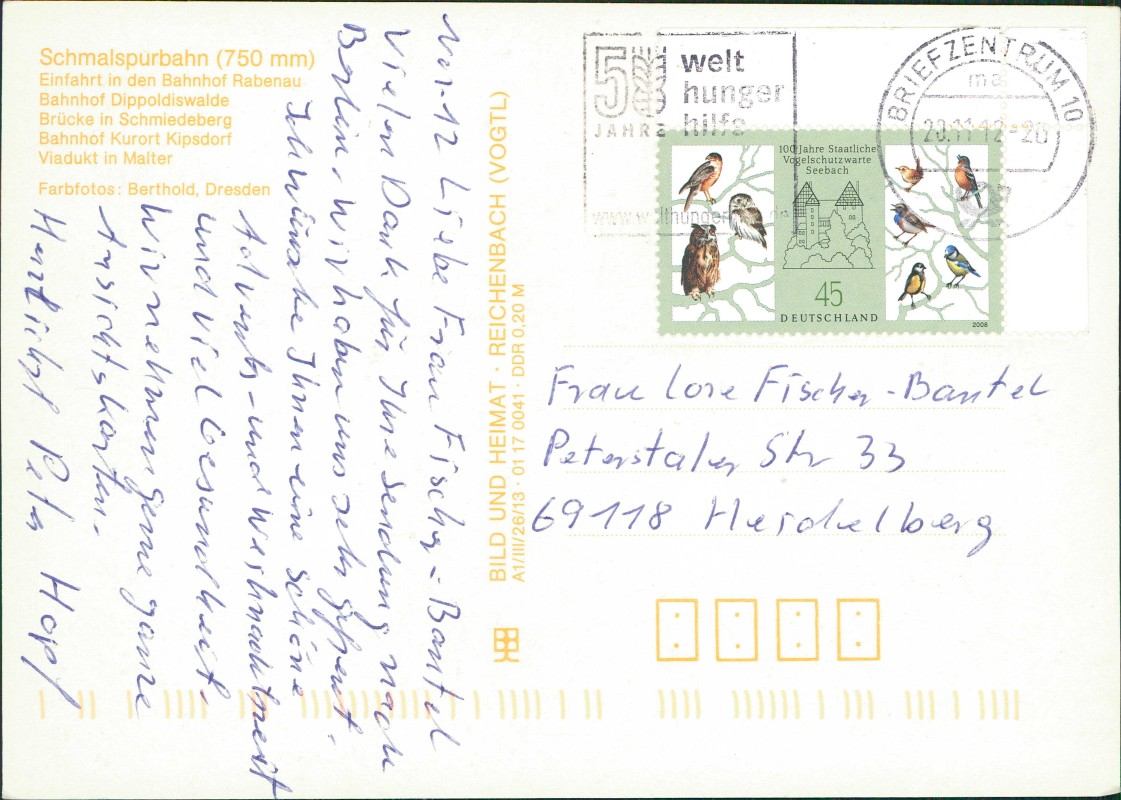 Schmalspurbahn (750 mm)
Einfahrt in den Bahnhof Rabenau
Bahnhof Dippoldiswalde
Brücke in Schmiedeberg
Bahnhof Kurort Kipsdorf
Viadukt in Malter
Farbfotos: Berthold, Dresden
Liebe Frau Fischer-Bantel
Vielen Dank für Ihre Sendung nach
Berlin. Wir haben uns sehr gefreut.
Ich wünsche Ihnen eine schöne
Advents- und Weihnachtszeit
und viel Gesundheit.
Wir nehmen gerne ganze
Ansichtskarten.
Herzlichst Peter Hopf
BILD UND HEIMAT · REICHENBACH (VOGTL)
A1/III/26/13 · 01 17 0041 · DDR 0,20 M
50 JAHRE
welt
hunger
hilfe
BRIEFZENTRUM 10
20.11.12-20
100 Jahre Staatliche
Vogelschutzwarte
Seebach
45
DEUTSCHLAND
2008
Frau Lore Fischer-Bantel
Peterstaler Str 33
69118 Heidelberg